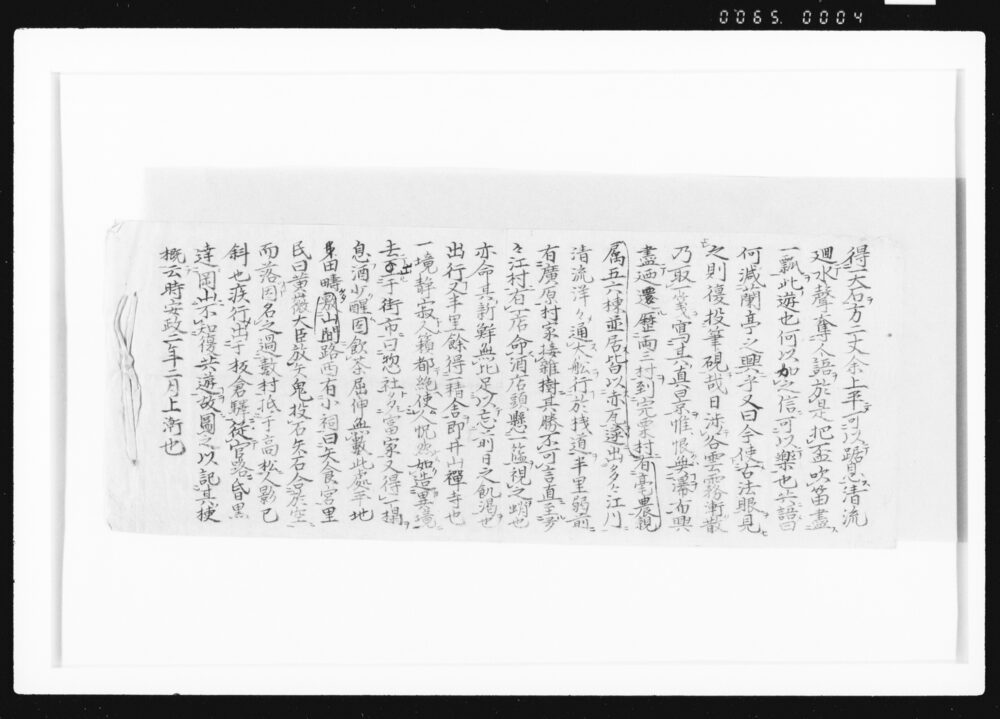 0065 0004
得一大石方二丈余上平可以踞息清流
廻水聲奪人語於是把盃吹笛盡
一瓢此遊也何以加之信可以樂也共語曰
何減蘭亭之興乎又曰今使古法眼見
之則復投筆硯哉日渉谷雲雲務衝散
乃取筆寫其真景惟恨無瀑布興
盡廼還歴両三村到宍粟村有亭農親
属五六棟並居皆以赤瓦遂出多々江川
清流洋々通人舩行於桟道半里弱前
有廣原村家接雜樹其勝不可言直至多
々江村有一店命酒店頭懸一籃視之蛸也
亦命其新鮮無比足以忘前日之飢渇也
出行又半里餘得一精舎即井山禪寺也
一境静寂人籟都絶使人怳然如造異境
去出于街市曰惣社多富家又得一榻
息酒少醒因飲茶屈伸無數此處平地
多田疇開山間路西有小祠曰矢食宮里
民曰黄薇大臣放矢鬼投石矢石合矣空
而落因名之過數村抵于高松人影已
斜也疾行出于板倉驛從官路昏黒
達岡山不知復共遊故圖之以記其梗
概云時安政二年二月上澣也